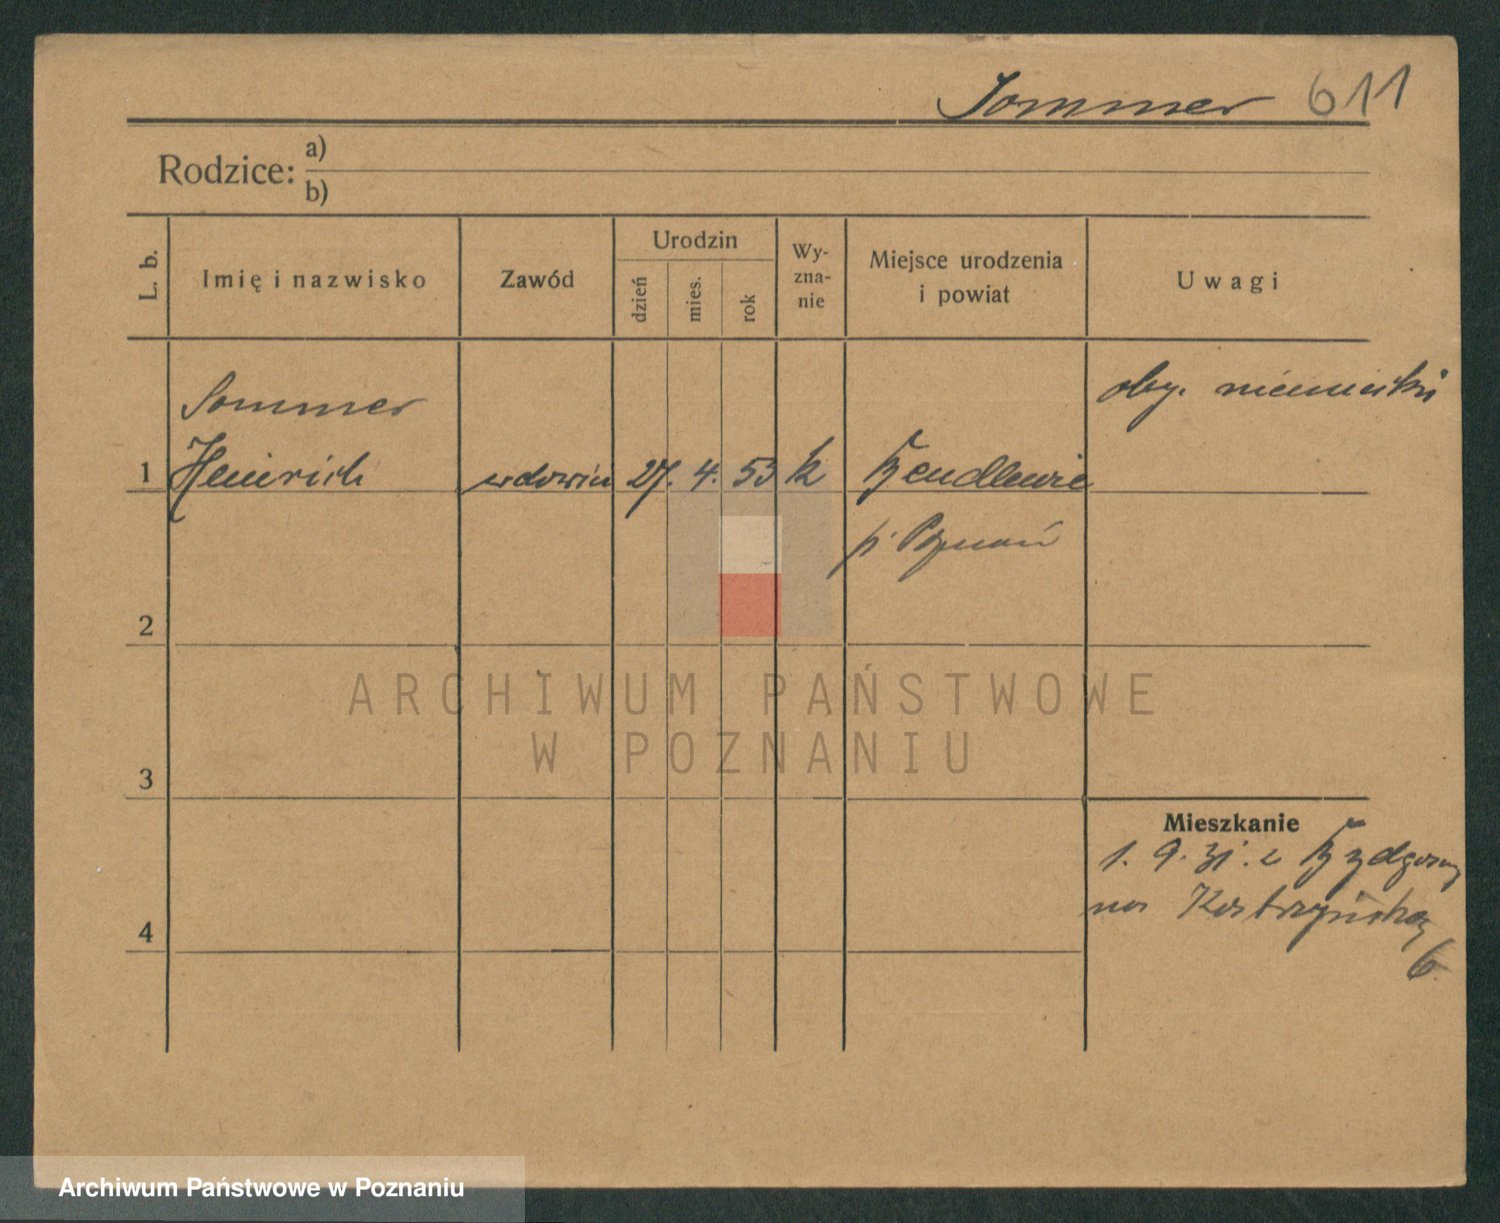 Sommer 611
Rodzice: a)
b)
L. b.
Imię i nazwisko
Zawód
Urodzin
dzień
mies.
rok
Wy-
zna-
nie
Miejsce urodzenia
i powiat
Uwagi
oby. niemiecki
Sommer
1 Heinrich wdowiec 27. 4. 53 k Bendlewie
p. Poznań
2
3
4
Mieszkanie
1. 9. 31. z Bydgoszczy
na Kostrzyńską
6.
ARCHIWUM PAŃSTWOWE
W POZNANIU
Archiwum Państwowe w Poznaniu